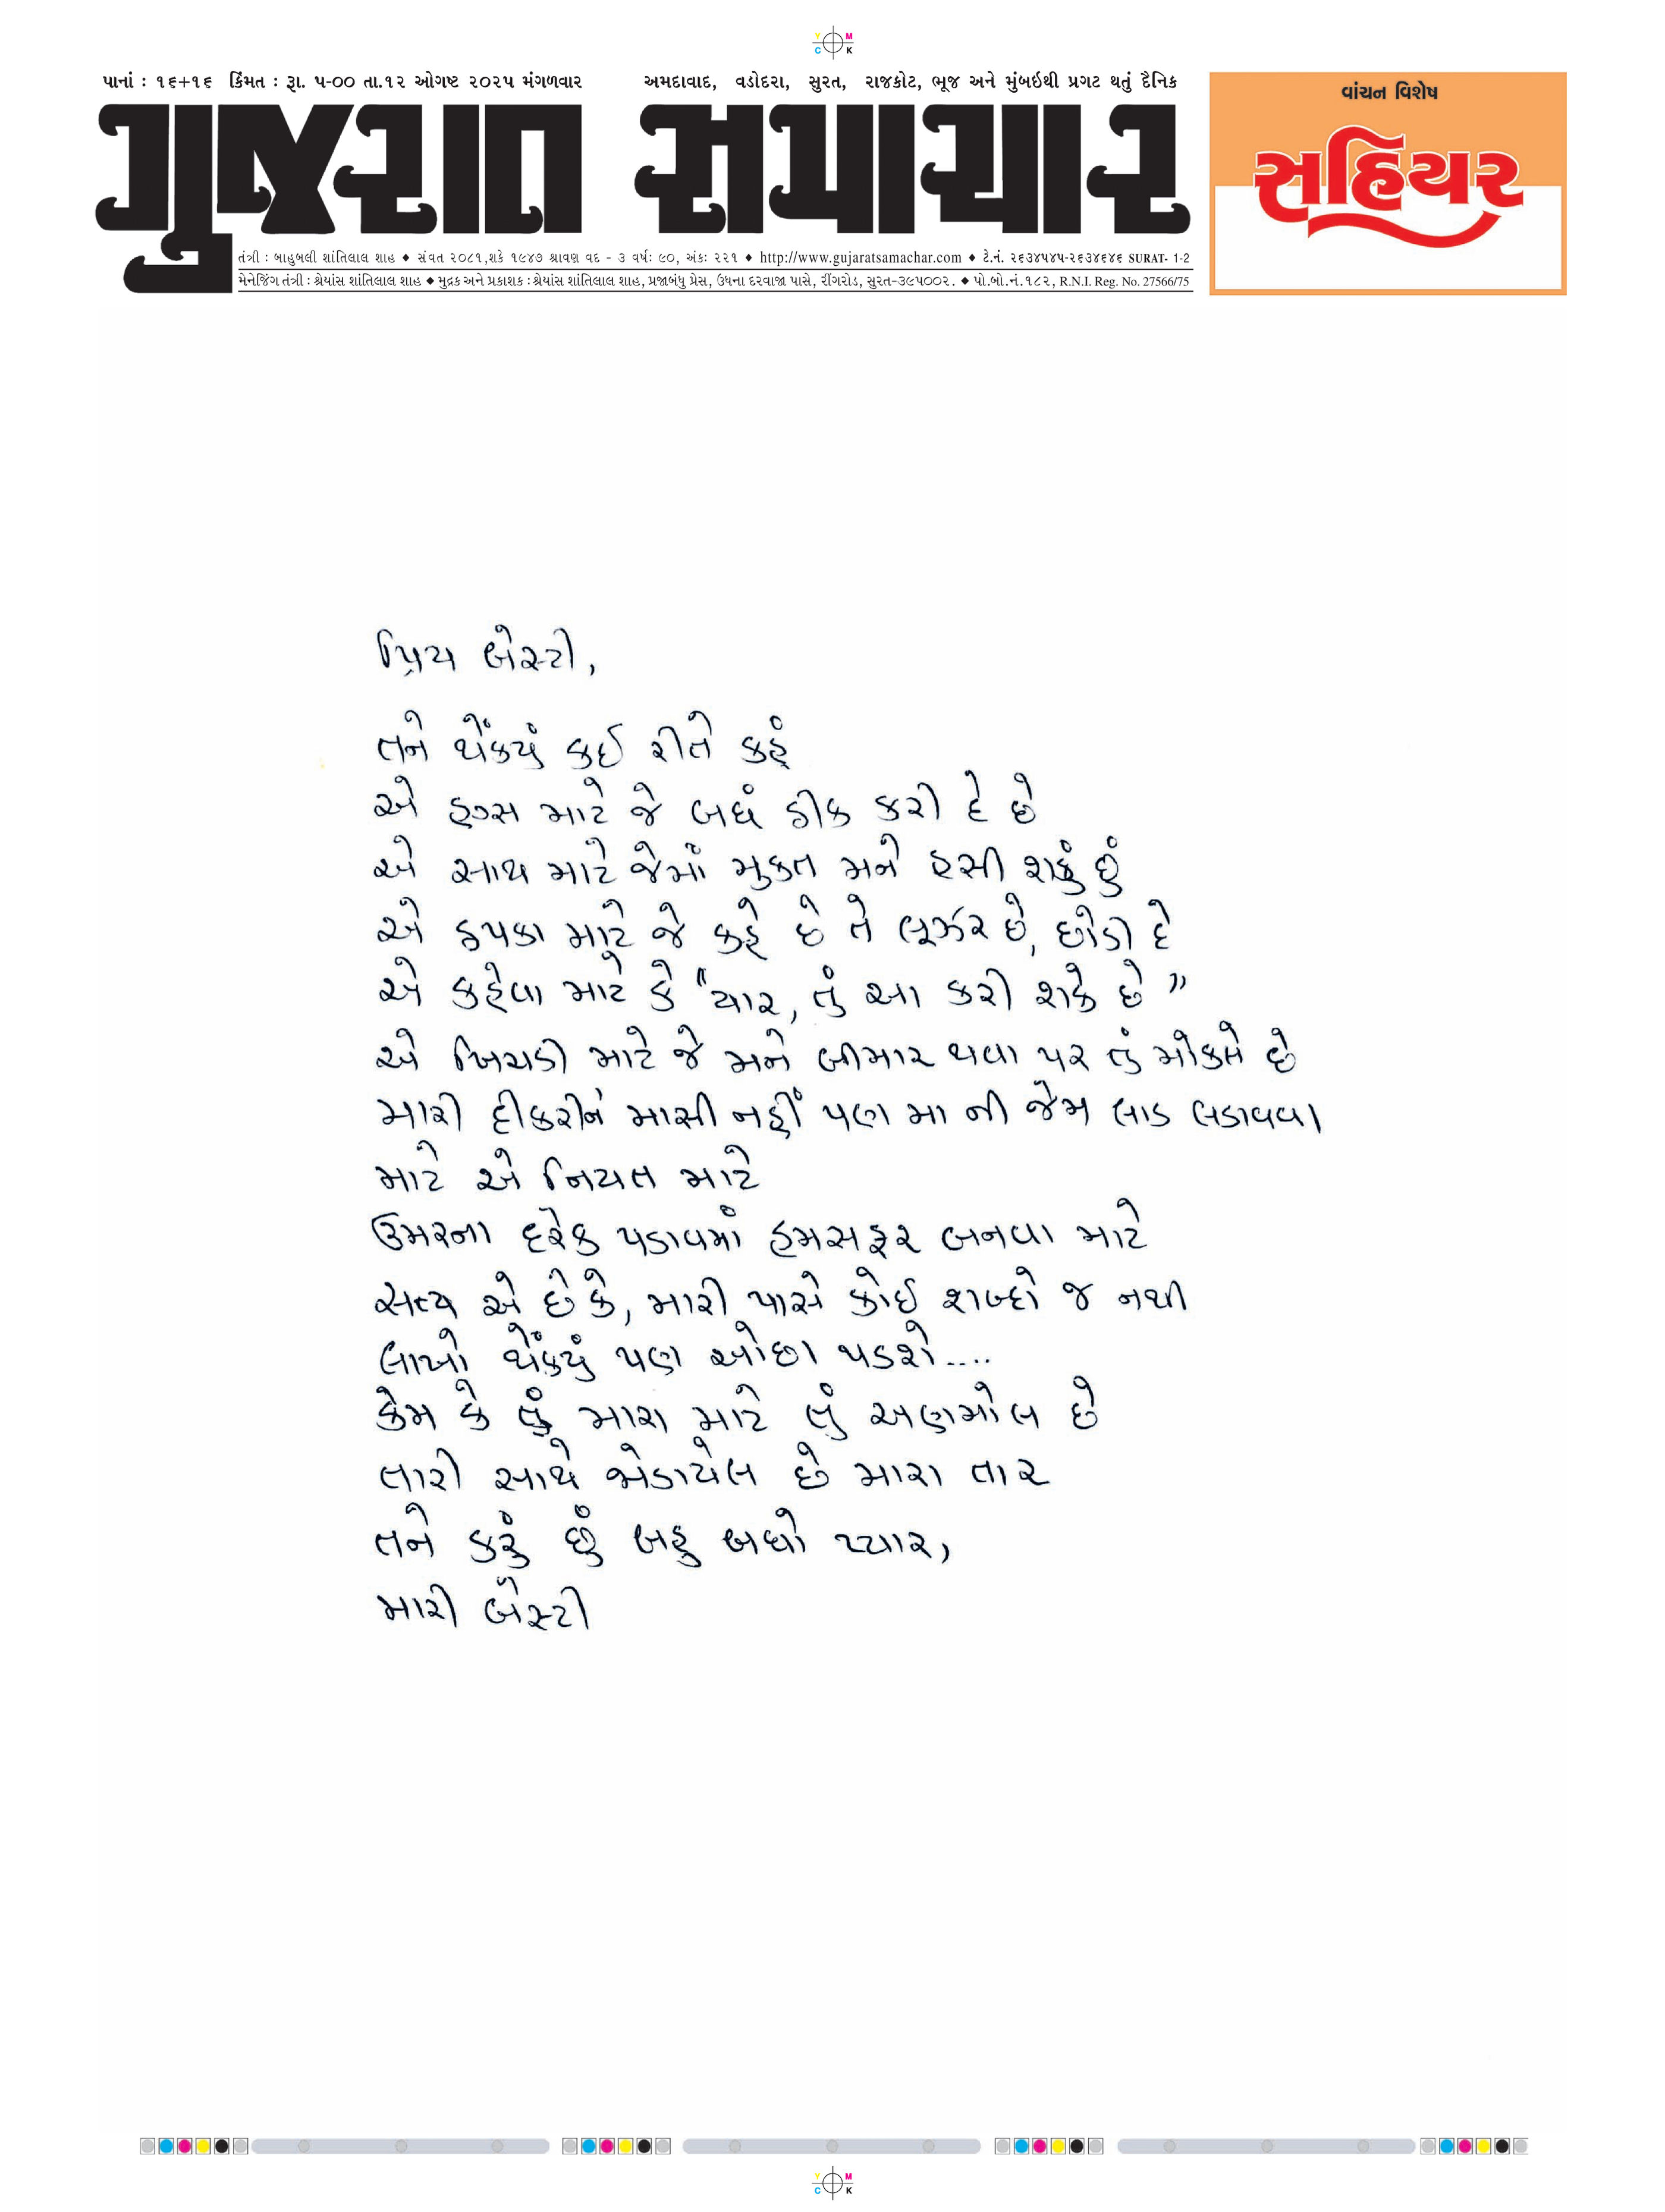 પાનાં : ૧૬+૧૬ કિંમત : રૂા. ૫-૦૦ તા.૧૨ ઓગષ્ટ ૨૦૨૫ મંગળવાર
અમદાવાદ, વડોદરા, સુરત, રાજકોટ, ભૂજ અને મુંબઇથી પ્રગટ થતું દૈનિક
ગુજરાત સમાચાર
વાંચન વિશેષ
સહિયર
તંત્રી : બાહુબલી શાંતિલાલ શાહ ♦ સંવત ૨૦૮૧,શકે ૧૯૪૭ શ્રાવણ વદ - ૩ વર્ષઃ ૯૦, અંકઃ ૨૨૧ ♦ http://www.gujaratsamachar.com ♦ ટે.નં. ૨૬૩૪૫૪૫-૨૬૩૪૬૪૬ SURAT- 1-2
મેનેજિંગ તંત્રી : શ્રેયાંસ શાંતિલાલ શાહ ♦ મુદ્રક અને પ્રકાશક : શ્રેયાંસ શાંતિલાલ શાહ, પ્રજાબંધુ પ્રેસ, ઉધના દરવાજા પાસે, રીંગરોડ, સુરત-૩૯૫૦૦૨. ♦ પો.બો.નં.૧૮૨, R.N.I. Reg. No. 27566/75
પ્રિય બેસ્ટી,
તને થેંક્યું કઈ રીતે કહું
એ હગ્સ માટે જે બધું ઠીક કરી દે છે
એ સાથ માટે જેમાં મુક્ત મને હસી શકું છું
એ ઠપકા માટે જે કહે છે તે લૂઝર છે, છોડી દે
એ કહેવા માટે કે "યાર, તું આ કરી શકે છે"
એ ખિચડી માટે જે મને બીમાર થવા પર તું મોકલે છે
મારી દીકરીને માસી નહીં પણ મા ની જેમ લાડ લડાવવા
માટે એ નિયત માટે
ઉંમરના દરેક પડાવમાં હમસફર બનવા માટે
સત્ય એ છે કે, મારી પાસે કોઈ શબ્દો જ નથી
લાખો થેંક્યું પણ ઓછા પડશે....
કેમ કે તું મારા માટે તું અણમોલ છે
તારી સાથે જોડાયેલ છે મારા તાર
તને કરું છું બહુ બધો પ્યાર,
મારી બેસ્ટી